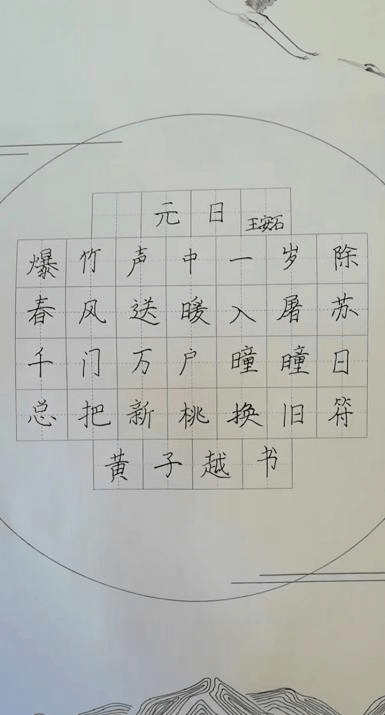 元日
王安石
爆竹声中一岁除
春风送暖入屠苏
千门万户曈曈日
总把新桃换旧符
黄子越书